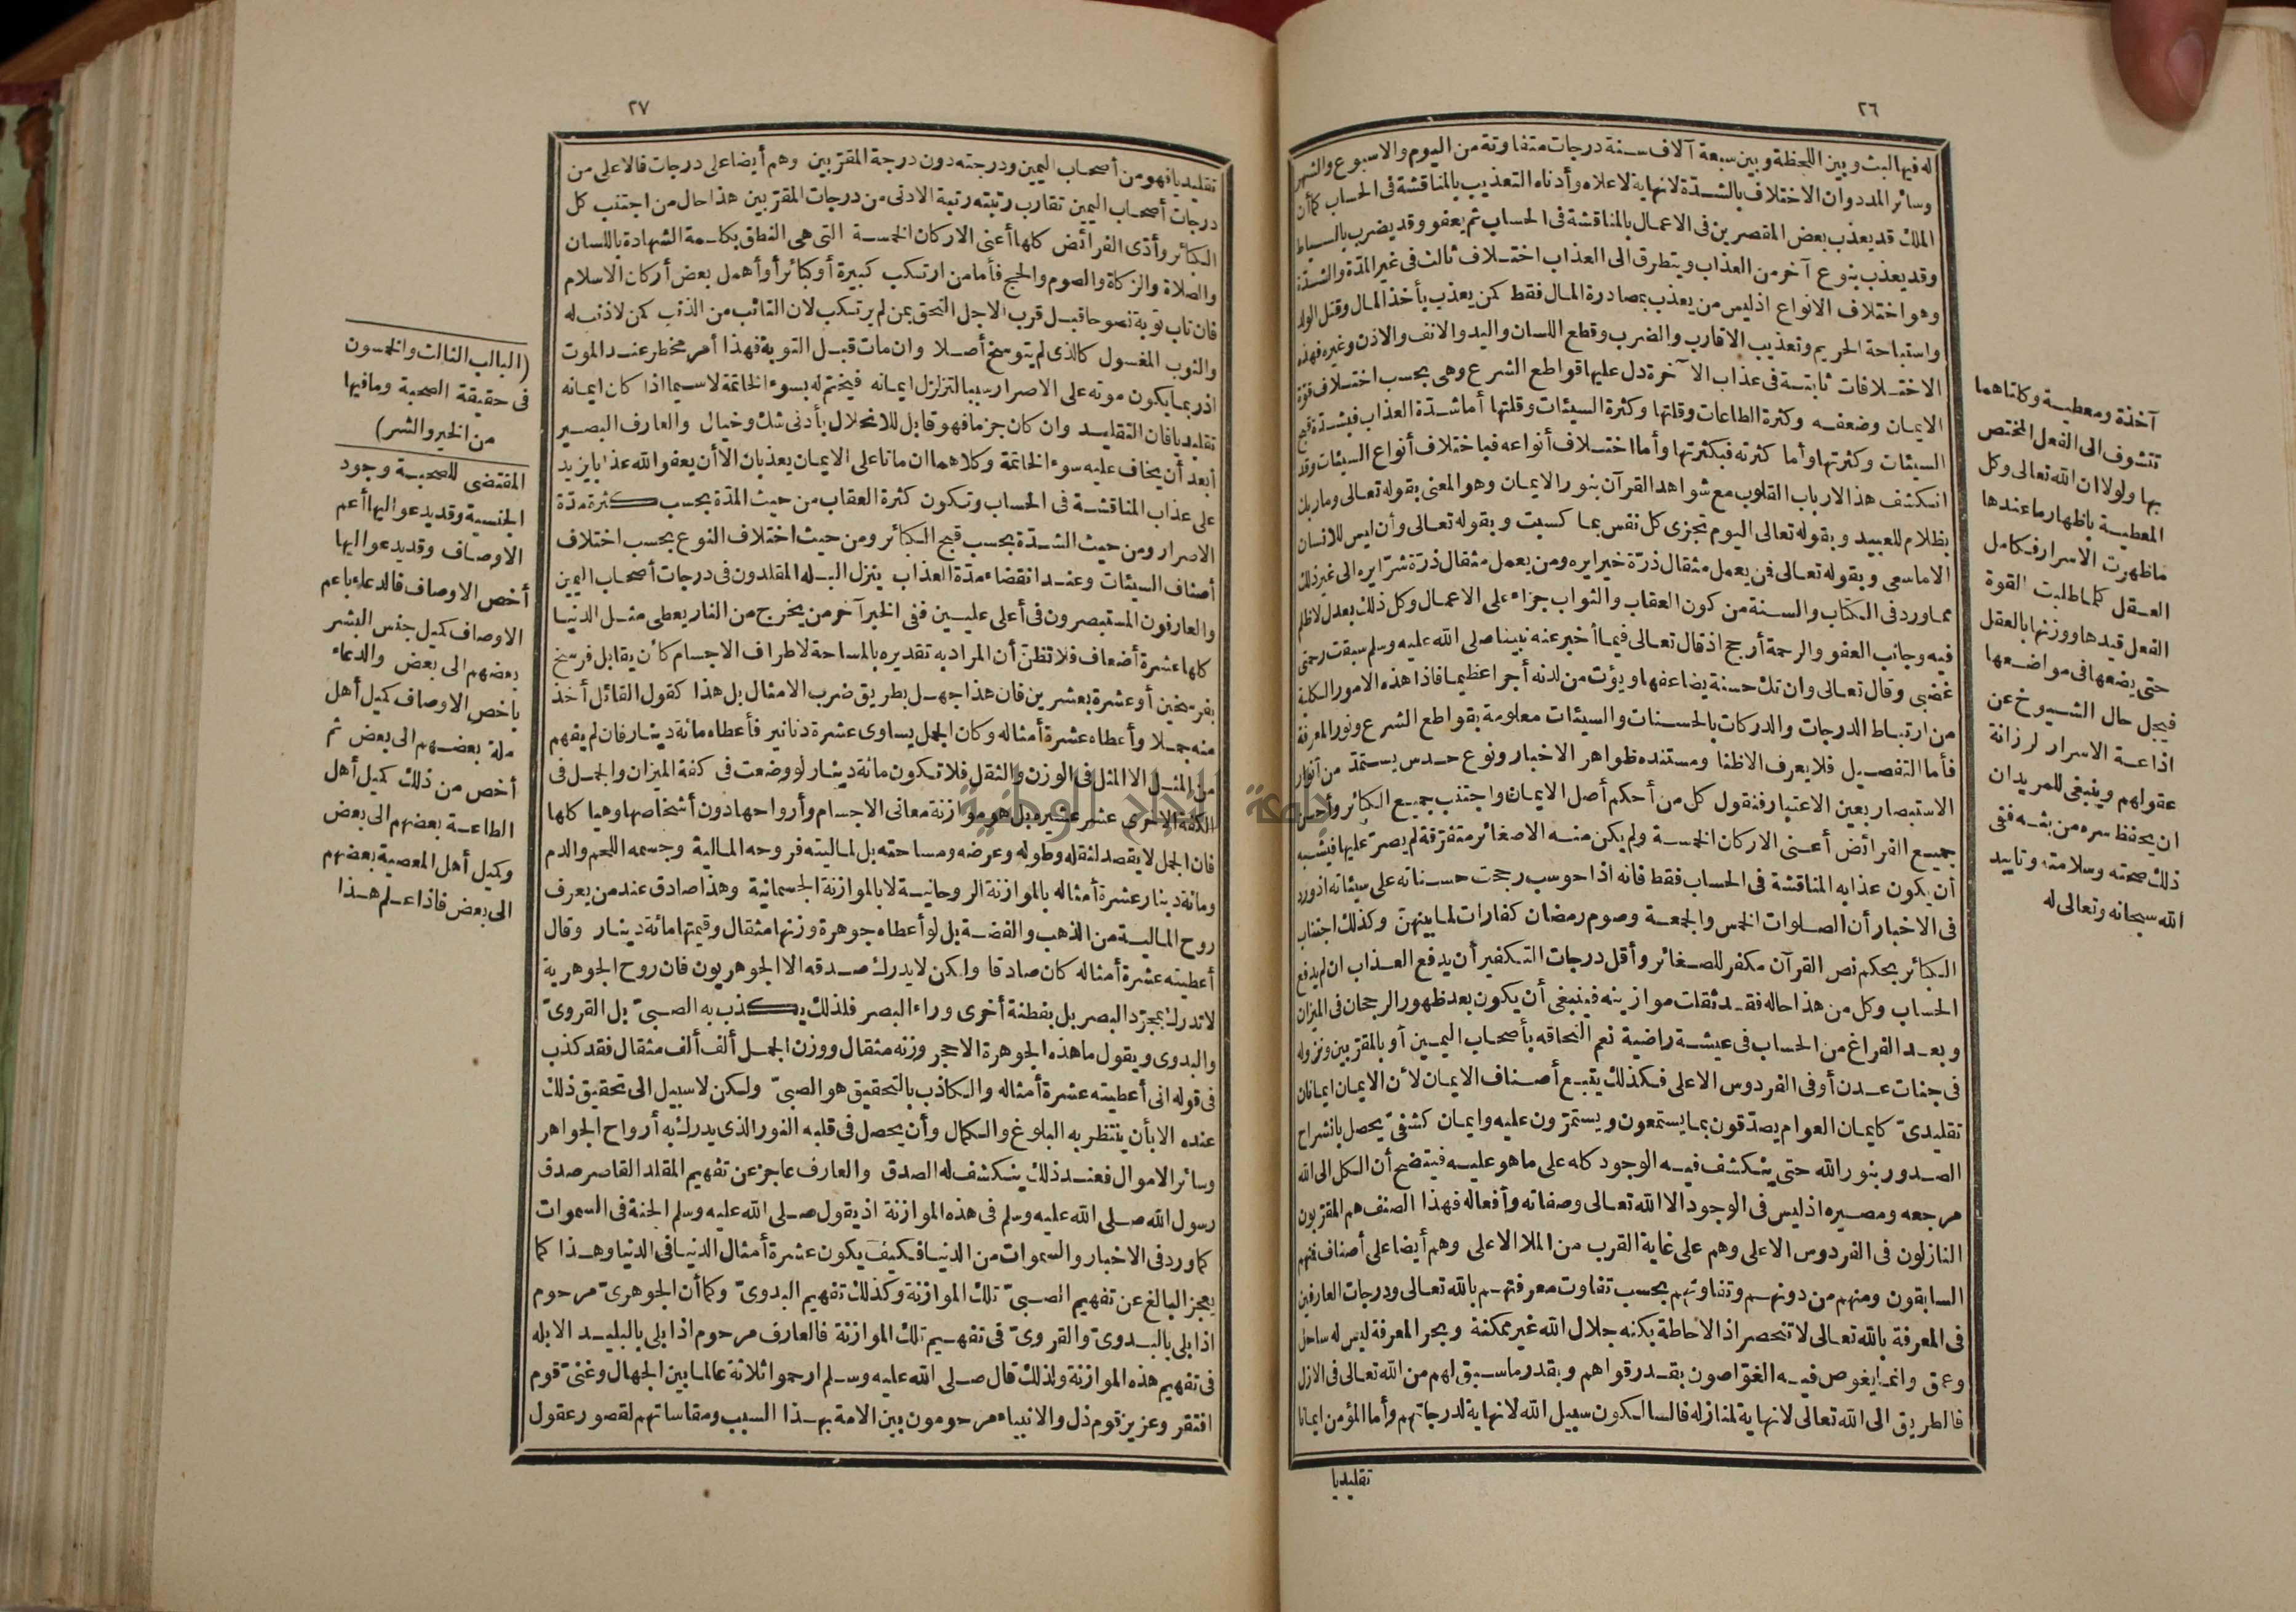 ٢٦
له فيها البث وبين اللحظة وبين سبعة آلاف سنة درجات متفاوتة من اليوم والاسبوع والشهر
وسائر المدد وان الاختلاف بالشدة لانهاية لاعلاه وأدناه التعذيب بالمناقشة فى الحساب كما أن
الملك قد يعذب بعض المقصرين فى الاعمال بالمناقشة فى الحساب ثم يعفو وقد يضرب بالسياط
وقد يعذب بنوع آخر من العذاب ويتطرق الى العذاب اختلاف ثالث فى غير المدّة والشدّة
وهو اختلاف الانواع اذ ليس من يعذب بمصادرة المال فقط كمن يعذب بأخذ المال وقتل الولد
واستباحة الحريم وتعذيب الاقارب والضرب وقطع اللسان واليد والانف والاذن وغيره فهذه
الاختلافات ثابتة فى عذاب الآخرة دل عليها قواطع الشرع وهى بحسب اختلاف قوّة
الايمان وضعفه وكثرة الطاعات وقلتها وكثرة السيئات وقلتها أما شدّة العذاب فبشدّة قبح
السيئات وكثرتها وأما كثرته فبكثرتها وأما اختلاف أنواعه فباختلاف أنواع السيئات وقد
انكشف هذا الارباب القلوب مع شواهد القرآن بنور الايمان وهو المعنى بقوله تعالى وما ربك
بظلام للعبيد وبقوله تعالى اليوم تجزى كل نفس بما كسبت وبقوله تعالى وأن ليس للانسان
الا ما سعى وبقوله تعالى فمن يعمل مثقال ذرّة خيرا يره ومن يعمل مثقال ذرّة شرّا يره الى غير ذلك
مما ورد فى الكتاب والسنة من كون العقاب والثواب جزاء على الاعمال وكل ذلك بعدل لا ظلم
فيه وجانب العفو والرحمة أرجح اذ قال تعالى فيما أخبر عنه نبينا صلى الله عليه وسلم سبقت رحمتى
غضبى وقال تعالى وان تك حسنة يضاعفها ويؤت من لدنه أجرا عظيما فاذا هذه الامور الكلية
من ارتباط الدرجات والدركات بالحسنات والسيئات معلومة بقواطع الشرع ونور المعرفة
فأما التفصيل فلا يعرف الا ظنا ومستنده ظواهر الاخبار ونوع حدس يستمدّ من أنوار
الاستبصار بعين الاعتبار فنقول كل من أحكم أصل الايمان واجتنب جميع الكبائر وأحسن
جميع الفرائض أعنى الاركان الخمسة ولم يكن منه الا صغائر متفرّقة لم يصرّ عليها فيشبه
أن يكون عذابه المناقشة فى الحساب فقط فانه اذا حوسب رجحت حسناته على سيئاته اذ ورد
فى الاخبار أن الصلوات الخمس والجمعة وصوم رمضان كفارات لما بينهنّ وكذلك اجتناب
الكبائر بحكم نص القرآن مكفر للصغائر وأقل درجات التكفير أن يدفع العذاب ان لم يدفع
الحساب وكل من هذا حاله فقد ثقلت موازينه فينبغى أن يكون بعد ظهور الرجحان فى الميزان
وبعد الفراغ من الحساب فى عيشة راضية نعم التحاقه بأصحاب اليمين أو بالمقرّبين ونزوله
فى جنات عدن أو فى الفردوس الاعلى فكذلك يتبع أصناف الايمان لأن الايمان ايمانان
تقليدىّ كايمان العوام يصدّقون بما يستمعون ويستمرّون عليه وايمان كشفىّ يحصل بانشراح
الصدور بنور الله حتى ينكشف فيه الوجود كله على ما هو عليه فيتضح أن الكل الى الله
مرجعه ومصيره اذ ليس فى الوجود الا الله تعالى وصفاته وأفعاله فهذا الصنف هم المقرّبون
النازلون فى الفردوس الاعلى وهم على غاية القرب من الملا الاعلى وهم أيضا على أصناف فمنهم
السابقون ومنهم من دونهم وتفاوتهم بحسب تفاوت معرفتهم بالله تعالى ودرجات العارفين
فى المعرفة بالله تعالى لا تنحصر اذ الاحاطة بكنه جلال الله غير ممكنة وبحر المعرفة ليس له ساحل
وعمق وانما يغوص فيه الغوّاصون بقدر قواهم وبقدر ما سبق لهم من الله تعالى فى الازل
فالطريق الى الله تعالى لانهاية لمنازله فالسالكون سبيل الله لانهاية لدرجاتهم وأما المؤمن ايمانا
تقليديا
آخذة ومعطية وكلتاهما
تتشوف الى الفعل المختص
بها ولولا ان الله تعالى وكل
المعطية باظهار ما عندها
ما ظهرت الاسرار فكامل
العقل كلما طلبت القوة
الفعل قيدها ووزنها بالعقل
حتى يضعها فى مواضعها
فيجل حال الشيوخ عن
اذاعة الاسرار لرزانة
عقولهم وينبغى للمريد ان
ان يحفظ سره من بثه ففى
ذلك صحته وسلامته وتاييد
الله سبحانه وتعالى له
٢٧
تقليديا فهو من أصحاب اليمين ودرجته دون درجة المقرّبين وهم أيضا على درجات فالاعلى من
درجات أصحاب اليمين تقارب رتبته رتبة الادنى من درجات المقرّبين هذا حال من اجتنب كل
الكبائر وأدّى الفرائض كلها أعنى الاركان الخمسة التى هى النطق بكلمة الشهادة باللسان
والصلاة والزكاة والصوم والحج فأما من ارتكب كبيرة أو كبائر أو أهمل بعض أركان الاسلام
فان تاب توبة نصوحا قبل قرب الاجل التحق بمن لم يرتكب لان التائب من الذنب كمن لا ذنب له
والثوب المغسول كالذى لم يتوسخ أصلا وان مات قبل التوبة فهذا أمر مخطر عند الموت
اذ ربما يكون موته على الاصرار سببا لتزلزل ايمانه فيختم له بسوء الخاتمة لاسيما اذا كان ايمانه
تقليديا فان التقليد وان كان جزما فهو قابل للانحلال بأدنى شك وخيال والعارف البصير
أبعد أن يخاف عليه سوء الخاتمة وكلاهما ان ماتا على الايمان يعذبان الا أن يعفو الله عذابا يزيد
على عذاب المناقشة فى الحساب وتكون كثرة العقاب من حيث المدّة بحسب كثرة مدّة
الاصرار ومن حيث الشدّة بحسب قبح الكبائر ومن حيث اختلاف النوع بحسب اختلاف
أصناف السيئات وعند انقضاء مدّة العذاب ينزل البله المقلدون فى درجات أصحاب اليمين
والعارفون المستبصرون فى أعلى عليين ففى الخبر آخر من يخرج من النار يعطى مثل الدنيا
كلها عشرة أضعاف فلا تظنّ أن المراد به تقديره بالمساحة لاطراف الاجسام كأن يقابل فرسخ
بفرسخين أو عشرة بعشرين فان هذا جهل بطريق ضرب الامثال بل هذا كقول القائل أخذ
منه جملا وأعطاه عشرة أمثاله وكان الجمل يساوى عشرة دنانير فأعطاه مائة دينار فان لم يفهم
من المثل الا المثل فى الوزن والثقل فلا تكون مائة دينار لو وضعت فى كفة الميزان والجمل فى
الكفة الاخرى عشر عشيره بل هو موازنة معانى الاجسام وأرواحها دون أشخاصها وهيا كلها
فان الجمل لا يقصد لثقله وطوله وعرضه ومساحته بل لماليته فروحه المالية وجسمه اللحم والدم
ومائة دينار عشرة أمثاله بالموازنة الروحانية لا بالموازنة الجسمانية وهذا صادق عند من يعرف
روح المالية من الذهب والفضة بل لو أعطاه جوهرة وزنها مثقال وقيمتها مائة دينار وقال
أعطيته عشرة أمثاله كان صادقا ولكن لا يدرك صدقه الا الجوهريون فان روح الجوهرية
لا تدرك بمجرّد البصر بل بفطنة أخرى وراء البصر فلذلك يكذب به الصبىّ بل القروىّ
والبدوى ويقول ما هذه الجوهرة الا حجر وزنه مثقال ووزن الجمل ألف ألف مثقال فقد كذب
فى قوله انى أعطيته عشرة أمثاله والكاذب بالتحقيق هو الصبىّ ولكن لا سبيل الى تحقيق ذلك
عنده الا بأن ينتظر به البلوغ والكمال وأن يحصل فى قلبه النور الذى يدرك به أرواح الجواهر
وسائر الاموال فعند ذلك ينكشف له الصدق والعارف عاجز عن تفهيم المقلد القاصر صدق
رسول الله صلى الله عليه وسلم فى هذه الموازنة اذ يقول صلى الله عليه وسلم الجنة فى السموات
كما ورد فى الاخبار والسموات من الدنيا فكيف يكون عشرة أمثال الدنيا فى الدنيا وهذا كما
يعجز البالغ عن تفهيم الصبىّ تلك الموازنة وكذلك تفهيم البدوىّ وكما أن الجوهرىّ مرحوم
اذا بلى بالبدوىّ والقروىّ فى تفهيم تلك الموازنة فالعارف مرحوم اذا بلى بالبليد الابله
فى تفهيم هذه الموازنة ولذلك قال صلى الله عليه وسلم ارحموا ثلاثة عالما بين الجهال وغنىّ قوم
افتقر وعزيز قوم ذل والانبياء مرحومون بين الامة بهذا السبب ومقاساتهم لقصور عقول
(الباب الثالث والخمسون
فى حقيقة الصحبة وما فيها
من الخير والشر)
المقتضى للصحبة وجود
الجنسية وقد يدعو اليها أعم
الاوصاف وقد يدعو اليها
أخص الاوصاف فالدعاء باعم
الاوصاف كميل جنس البشر
بعضهم الى بعض والدعاء
باخص الاوصاف كميل أهل
ملة بعضهم الى بعض ثم
أخص من ذلك كميل أهل
الطاعة بعضهم الى بعض
وكميل أهل المعصية بعضهم
الى بعض فاذا علم هذا
جامعة النجاح الوطنية